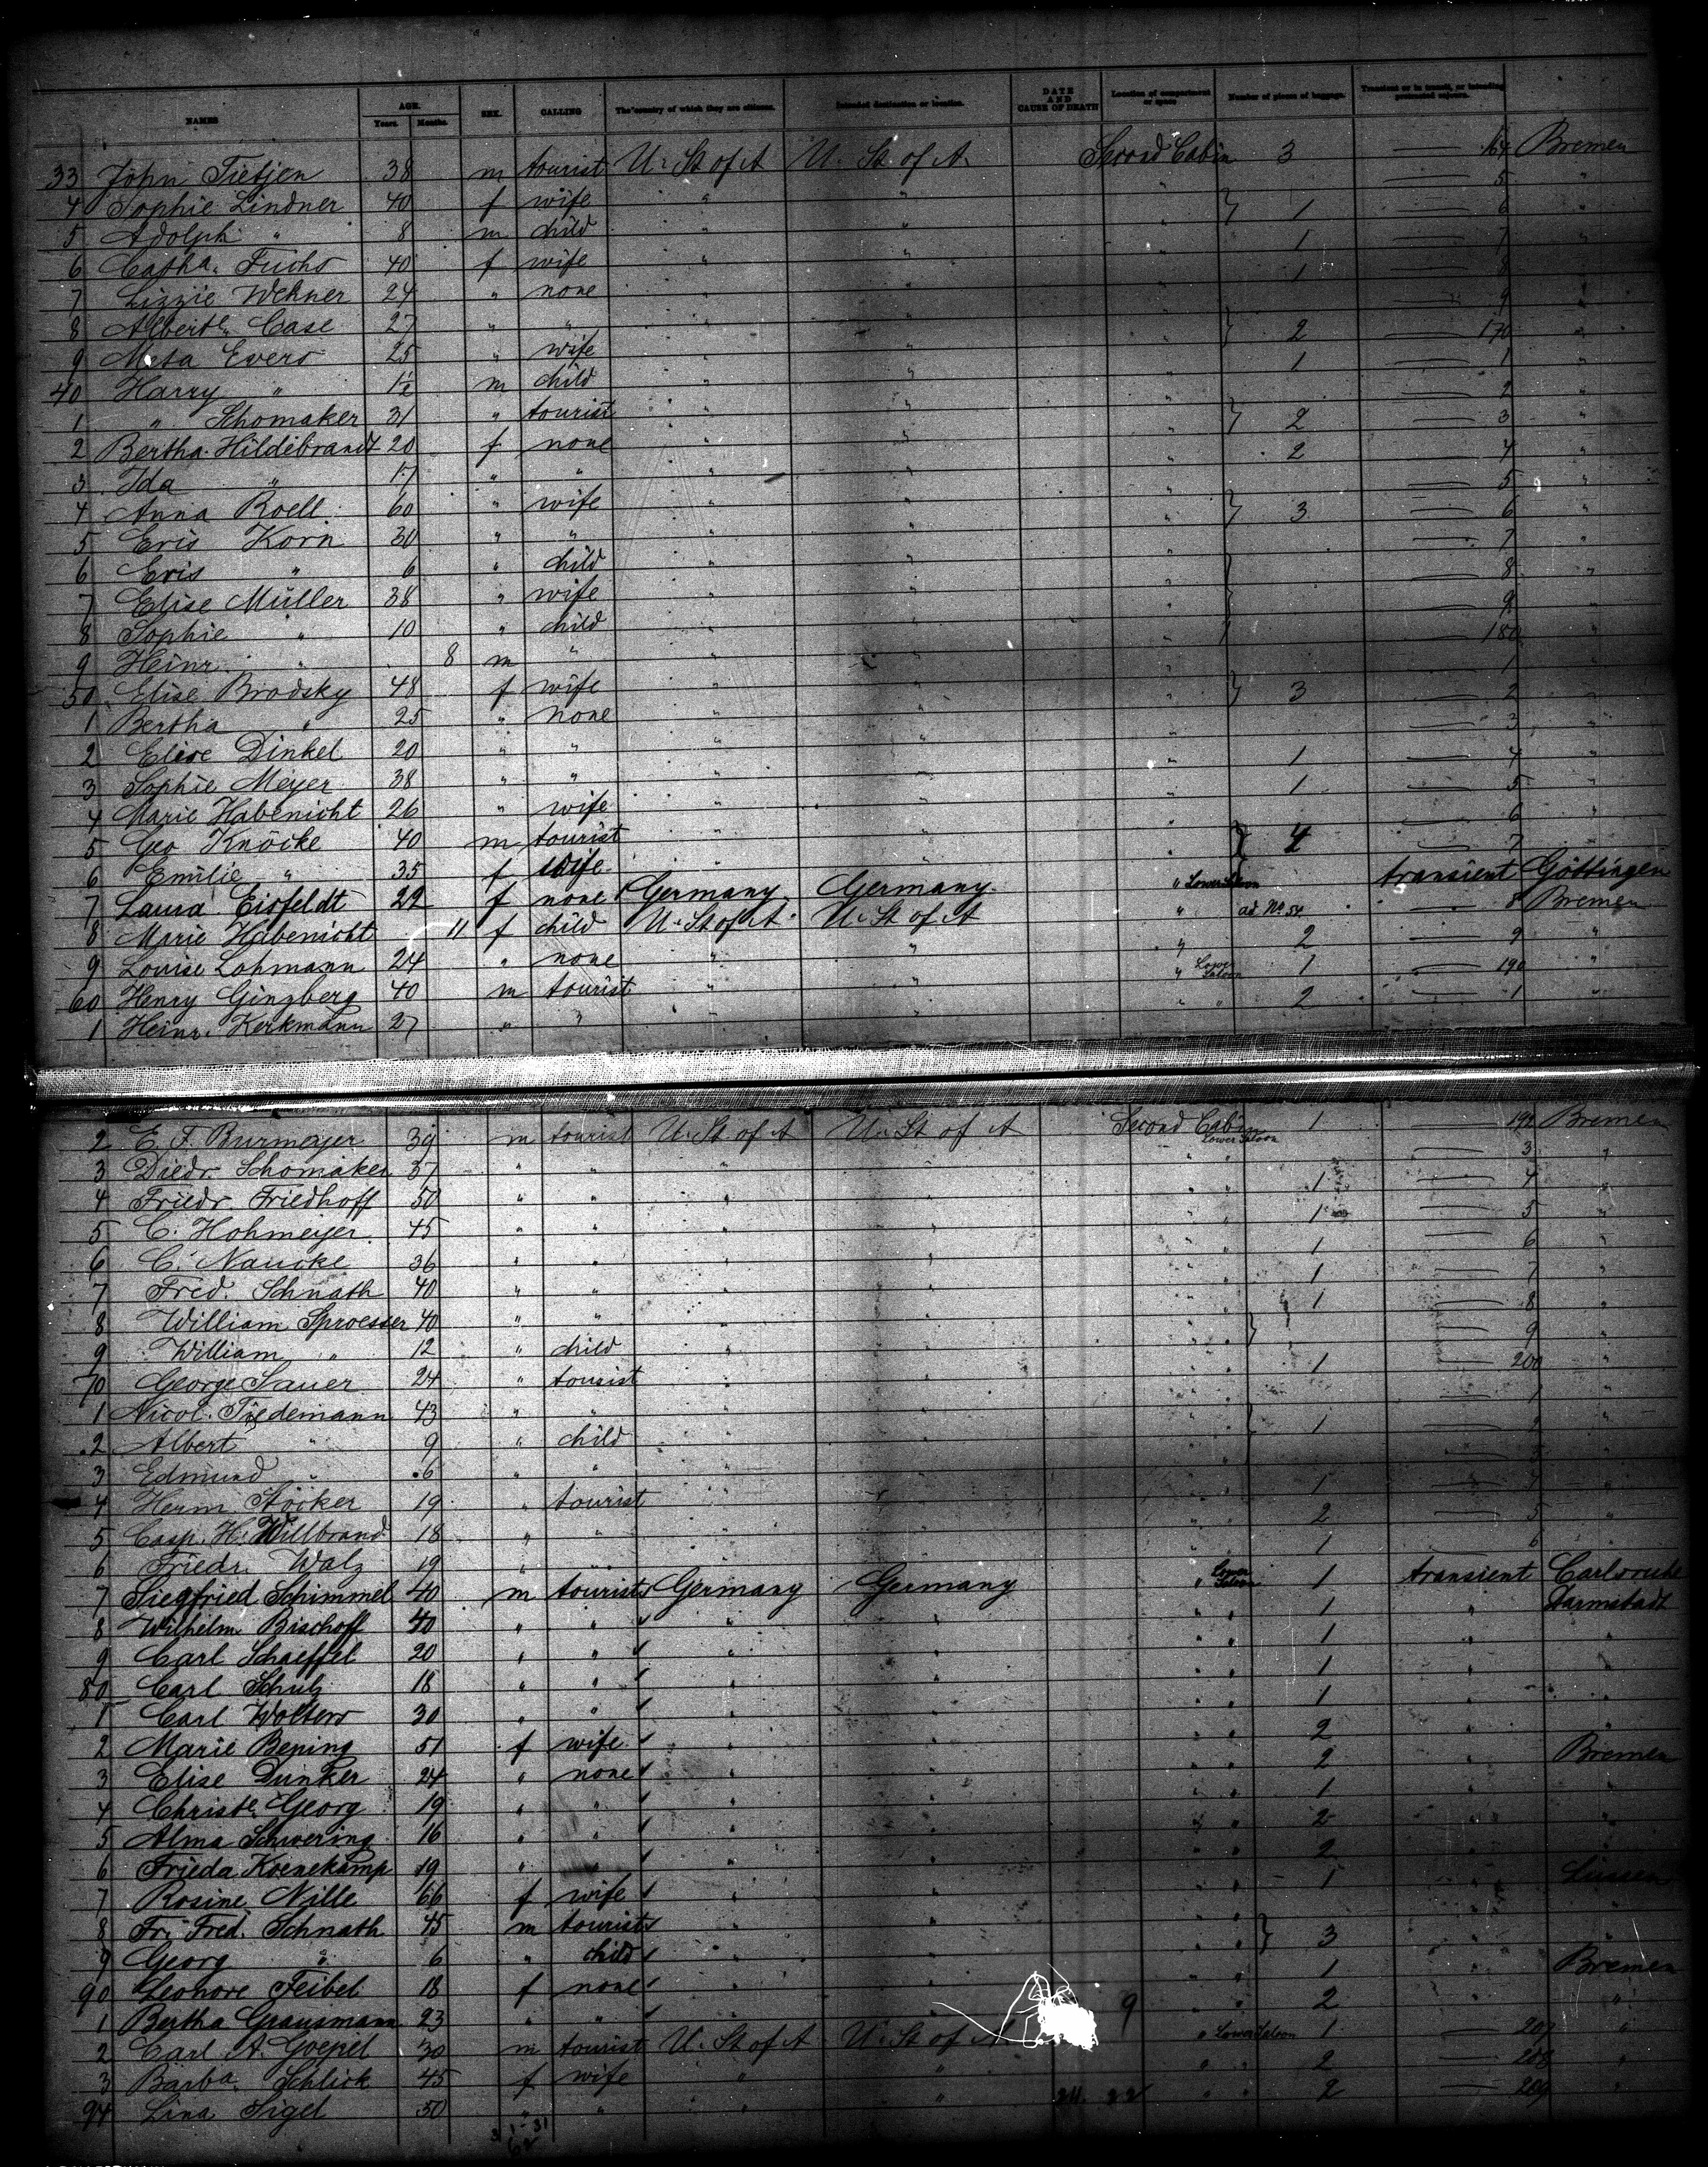 NAMES AGE. Years. Months. SEX. CALLING The country of which they are citizens. Intended destination or location. DATE AND CAUSE OF DEATH Location of compartment or space Number of pieces of baggage. Transient or in transit, or intending protracted sojourn.
33 John Tietjen 38 m tourist U. St of A U. St of A. Second Cabin 3 — 164 Bremen
4 Sophie Lindner 40 f wife " " " — 5 "
5 Adolph " 8 m child " " " } 1 — 6 "
6 Catha. Fuchs 40 f wife " " " 1 — 7 "
7 Lizzie Wehner 24 " none " " " 1 — 8 "
8 Alberte. Case 27 " " " " " — 9 "
9 Meta Evers 25 " wife " " " } 2 — 170 "
40 Harry " 1½ m child " " " 1 — 1 "
1 " Schomaker 31 " tourist " " " — 2 "
2 Bertha Hildebrandt 20 f none " " " } 2 — 3 "
3 Ida " 17 " " " " " 2 — 4 "
4 Anna Roell 60 " wife " " " — 5 "
5 Eris Korn 30 " " " " " } 3 — 6 "
6 Eris " 6 " child " " " — 7 "
7 Elise Müller 38 " wife " " " — 8 "
8 Sophie " 10 " child " " " — 9 "
9 Heinr. " 8 m " " " " — 180 "
50 Elise Brodsky 48 f wife " " " — 1 "
1 Bertha " 25 " none " " " } 3 — 2 "
2 Elise Dinkel 20 " " " " " — 3 "
3 Sophie Meyer 38 " " " " " 1 — 4 "
4 Marie Habenicht 26 " wife " " " 1 — 5 "
5 Geo Knöcke 40 m tourist " " " — 6 "
6 Emilie " 35 f wife " " " } 4 — 7 "
7 Laura Eisfeldt 22 f none Germany Germany " Lower Saloon transient Göttingen
8 Marie Habenicht 11 f child U. St of A U. St of A " ad No. 54 — 8 Bremen
9 Louise Lohmann 24 " none " " " 2 — 9 "
60 Henry Ginzberg 40 m tourist " " " Lower Saloon 1 — 190 "
1 Heinr. Kerkmann 27 " " " " " " 2 — 1 "
2 E. F. Burmeyer 39 m tourist U. St of A U. St of A Second Cabin Lower Saloon 1 192 Bremen
3 Diedr. Schomaker 37 " " " " " " — 3 "
4 Friedr. Friedhoff 50 " " " " " " 1 — 4 "
5 C. Hohmeyer 45 " " " " " " 1 — 5 "
6 C. Naucke 36 " " " " " " 1 — 6 "
7 Fred. Schnath 40 " " " " " " 1 — 7 "
8 William Sproesser 40 " " " " " " 1 — 8 "
9 William " 12 " child " " " " } — 9 "
70 George Sauer 24 " tourist " " " " 1 — 200 "
1 Nicol. Tiedemann 43 " " " " " " — 1 "
2 Albert " 9 " child " " " " } 1 — 2 "
3 Edmund " 6 " " " " " " — 3 "
4 Herm. Stöcker 19 " tourist " " " " 1 — 4 "
5 Casp. H. Willbrand 18 " " " " " " 2 — 5 "
6 Friedr. Walz 19 " " " " " " 1 — 6 "
7 Siegfried Schimmel 40 m tourist Germany Germany " Lower Saloon 1 transient Carlsruhe
8 Wilhelm Bischoff 40 " " " " " " 1 " Darmstadt
9 Carl Schaeffel 20 " " " " " " 1 " "
80 Carl Schulz 18 " " " " " " 1 " "
1 Carl Wolters 30 " " " " " " 1 " "
2 Marie Beping 51 f wife " " " " 2 " "
3 Elise Dunker 24 " none " " " " 2 " Bremen
4 Christe. Georg 19 " " " " " " 1 " "
5 Alma Schwering 16 " " " " " " 2 " "
6 Frieda Koenekamp 19 " " " " " " 2 " "
7 Rosine Nille 66 f wife " " " " 1 "
8 Fr. Fred. Schnath 45 m tourist " " " " "
9 Georg " 6 " child " " " " } 3 " "
90 Leonore Feibel 18 f none " " " " 1 " Bremen
1 Bertha Grausmann 23 " " " " 9 " " 2 "
2 Carl A. Goepel 30 m tourist U. St of A U. St of A " Lower Saloon 1 — 207 "
3 Barba. Schlick 45 f wife " " " " 2 — 208 "
94 Lina Sigel 50 " " " " 22 " " 2 — 209 "
31
62